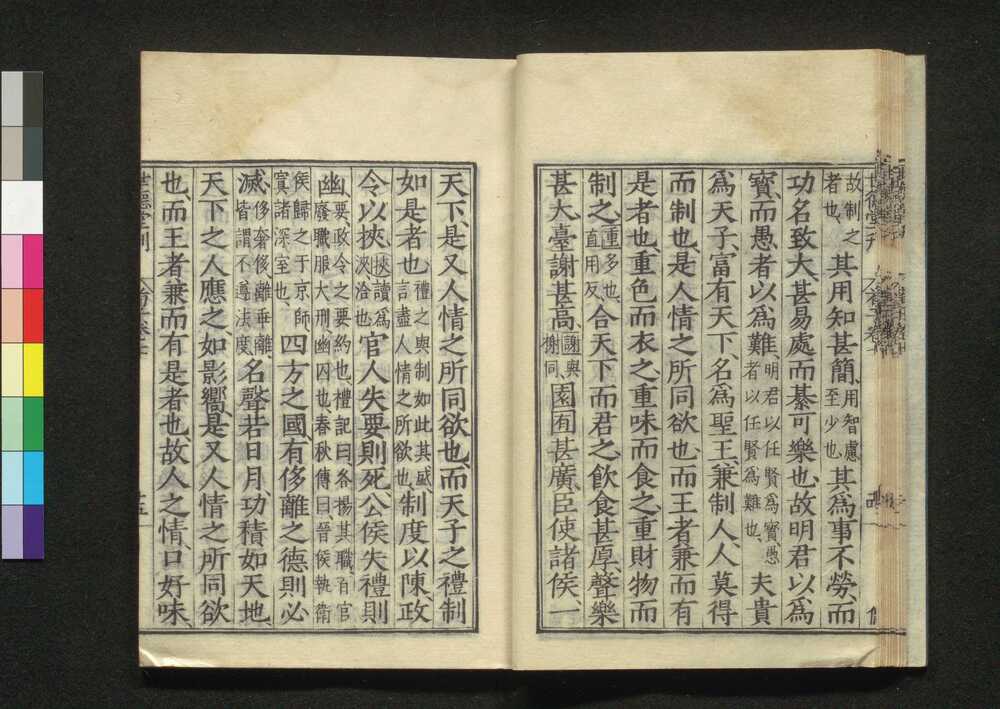 故制之者也、其用知甚簡、用智慮至少也、其爲事不勞、而
功名致大、甚易處而綦可樂也、故明君以爲
寳、而愚者以爲難、明君以任賢爲寳、愚者以任賢爲難也、夫貴
爲天子、富有天下、名爲聖王、兼制人、人莫得
而制也、是人情之所同欲也、而王者兼而有
是者也、重色而衣之、重味而食之、重財物而
制之、重多也、直用反、合天下而君之、飲食甚厚、聲樂
甚大、臺謝甚高、謝與榭同、園囿甚廣、臣使諸侯、一
天下、是又人情之所同欲也、而天子之禮制
如是者也、禮之與制如此其盛言盡人情之所欲也、制度以陳、政
令以挾、挾讀爲浹洽也、官人失要則死、公侯失禮則
幽、要政令之要約也、禮記曰各揚其職、百官廢職服大刑、幽囚也、春秋傳曰晉侯執衛
侯歸之于京師、寘諸深室也、四方之國有侈離之德則必
滅、侈奢侈、離乖離、皆謂不遵法度、名聲若日月、功積如天地、
天下之人應之如影嚮、是又人情之所同欲
也、而王者兼而有是者也、故人之情、口好味、
世德堂刊